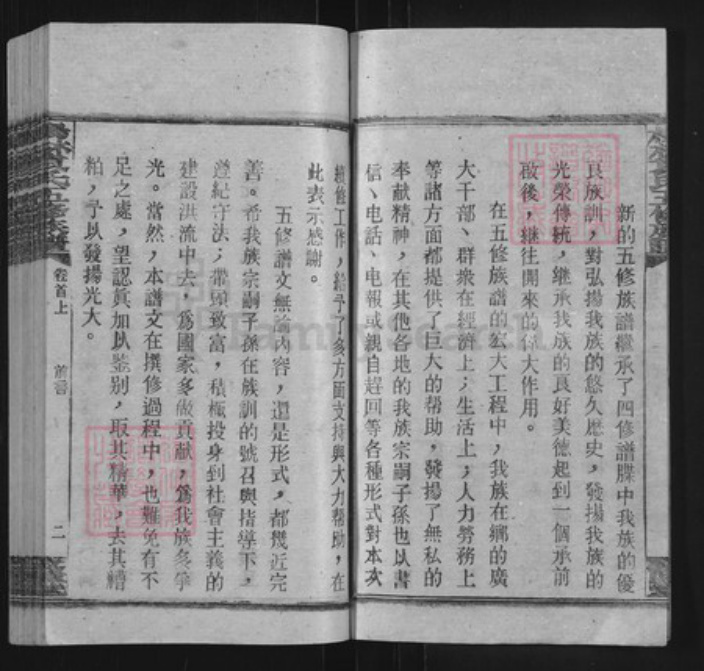 新的五修族譜繼承了四修譜牒中我族的優
良族訓，對弘揚我族的悠久歷史，發揚我族的
光榮傳統，繼承我族的良好美德起到一個承前
啟後，繼往開來的偉大作用。
在五修族譜的宏大工程中，我族在鄉的廣
大干部、群衆在經濟上；生活上；人力勞務上
等諸方面都提供了巨大的帮助，發揚了無私的
奉献精神，在其他各地的我族宗嗣子孫也以書
信、电話、电報或親自趕回等各種形式對本次
續修工作，給予了多方面支持與大力帮助，在
此表示感謝。
五修譜文無論内容，還是形式，都幾近完
善。希我族宗嗣子孫在族訓的號召與指導下，
遵紀守法；帶頭致富，積極投身到社會主義的
建設洪流中去，爲國家多做貢献，爲我族多爭
光。當然，本譜文在撰修過程中，也難免有不
足之處，望認眞加以鉴别，取其精華，去其糟
粕，予以發揚光大。
卷首上
前言
二
FamilySearch